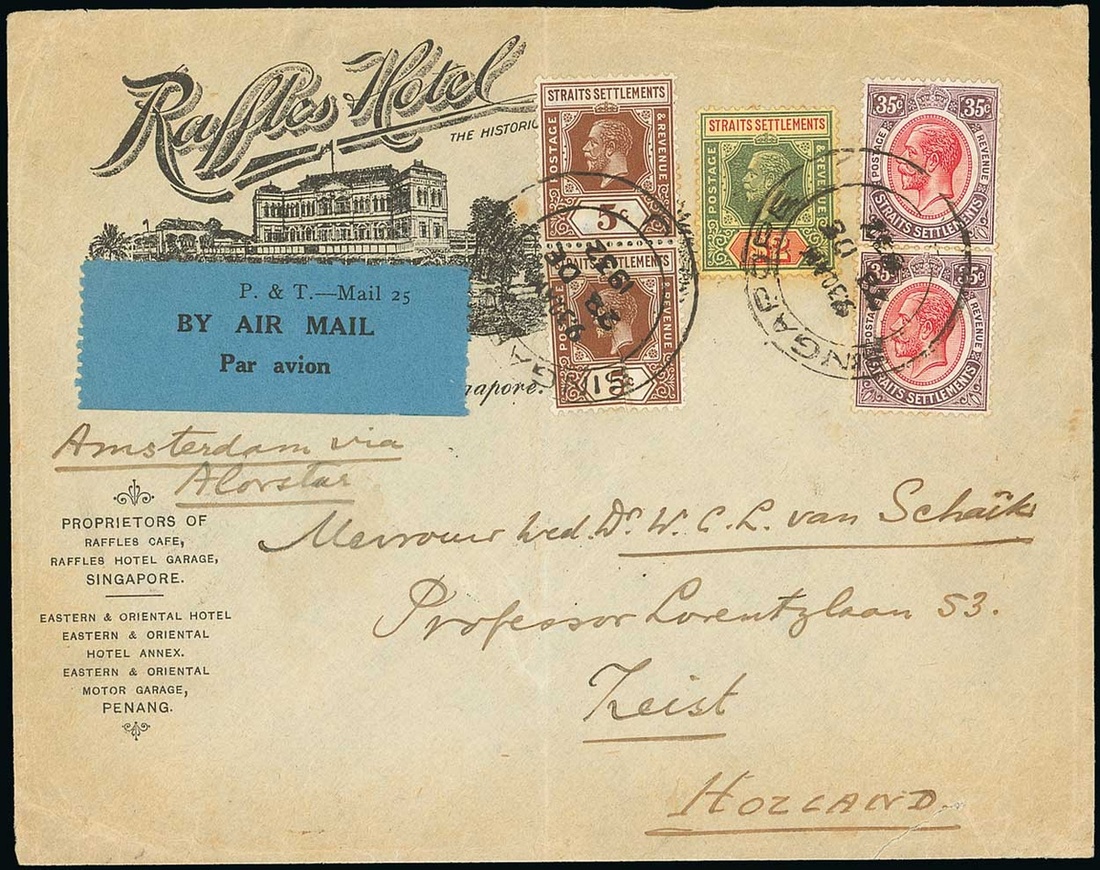 Raffles Hotel
THE HISTORIC
P. & T.—Mail 25
BY AIR MAIL
Par avion
apore.
STRAITS SETTLEMENTS
POSTAGE & REVENUE
5c
STRAITS SETTLEMENTS
POSTAGE & REVENUE
STRAITS SETTLEMENTS
POSTAGE & REVENUE
35c 35c
POSTAGE REVENUE
STRAITS SETTLEMENTS
35c 35c
POSTAGE REVENUE
STRAITS SETTLEMENTS
930AM
23 DE
1932
Amsterdam via
Alorstar
PROPRIETORS OF
RAFFLES CAFE,
RAFFLES HOTEL GARAGE,
SINGAPORE.
EASTERN & ORIENTAL HOTEL
EASTERN & ORIENTAL
HOTEL ANNEX.
EASTERN & ORIENTAL
MOTOR GARAGE,
PENANG.
Mevrouw wed. Dr. W. C. L. van Schaïk
Professor Lorentzlaan 53.
Zeist
HOLLAND